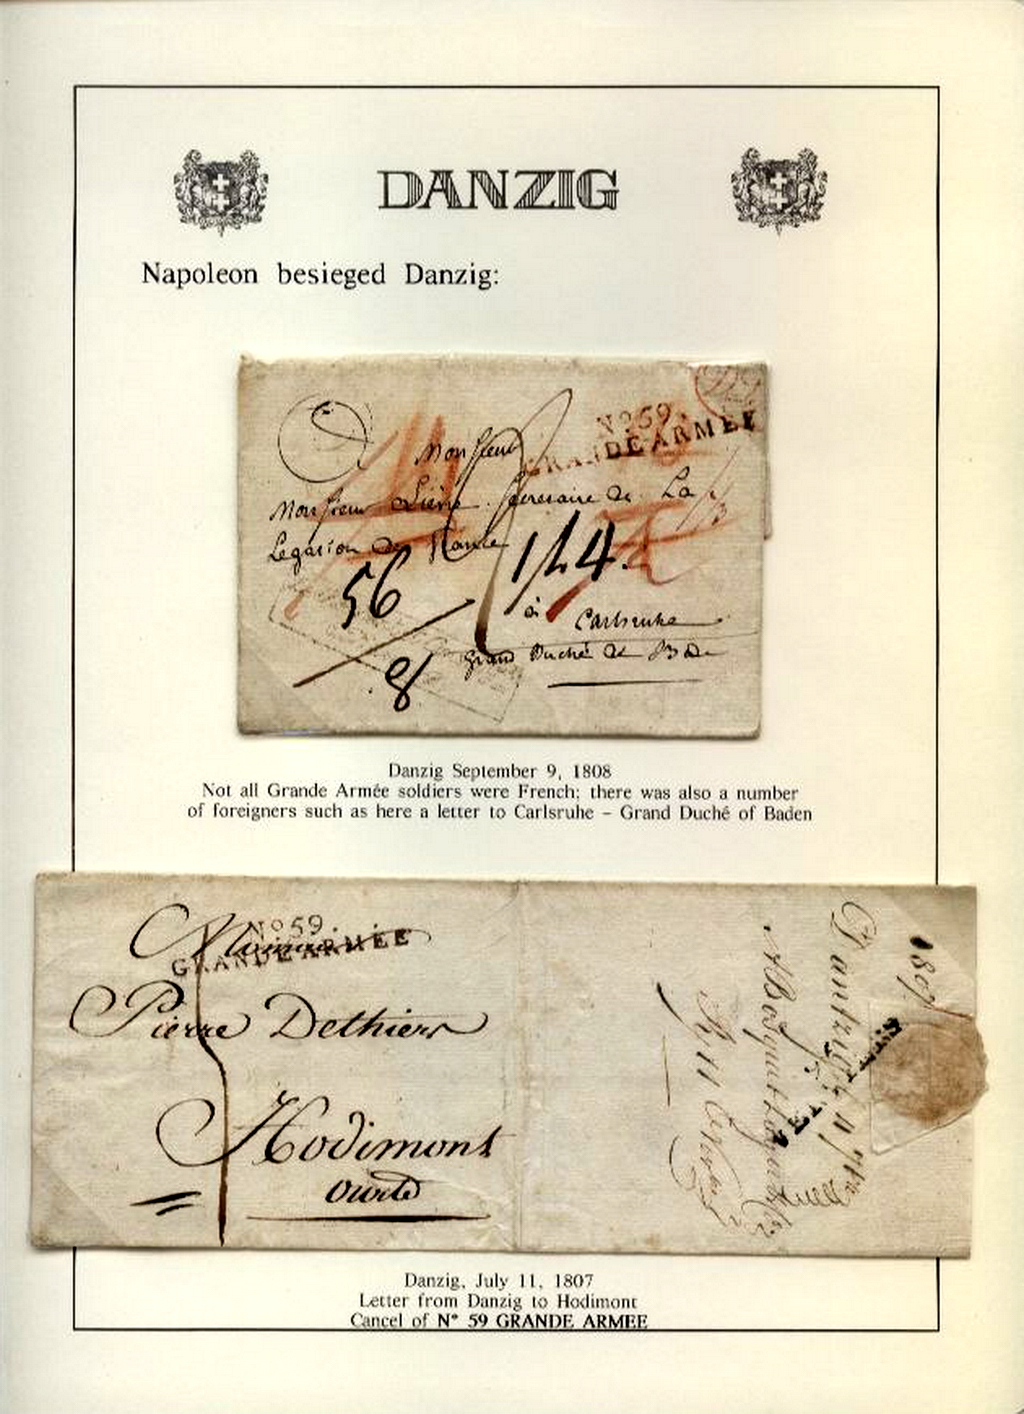 DANZIG
Napoleon besieged Danzig:
No 59.
GRANDE ARMÉE
Monsieur
Monsieur Secretaire de La
Legation de
144.
56
à Carlsruhe
8
Grand Duché de Bade
Danzig September 9, 1808
Not all Grande Armée soldiers were French; there was also a number
of foreigners such as here a letter to Carlsruhe - Grand Duché of Baden
No 59.
GRANDE ARMÉE
Pierre Dethier
Hodimont
1807
Dantzig
Danzig, July 11, 1807
Letter from Danzig to Hodimont
Cancel of N° 59 GRANDE ARMEE